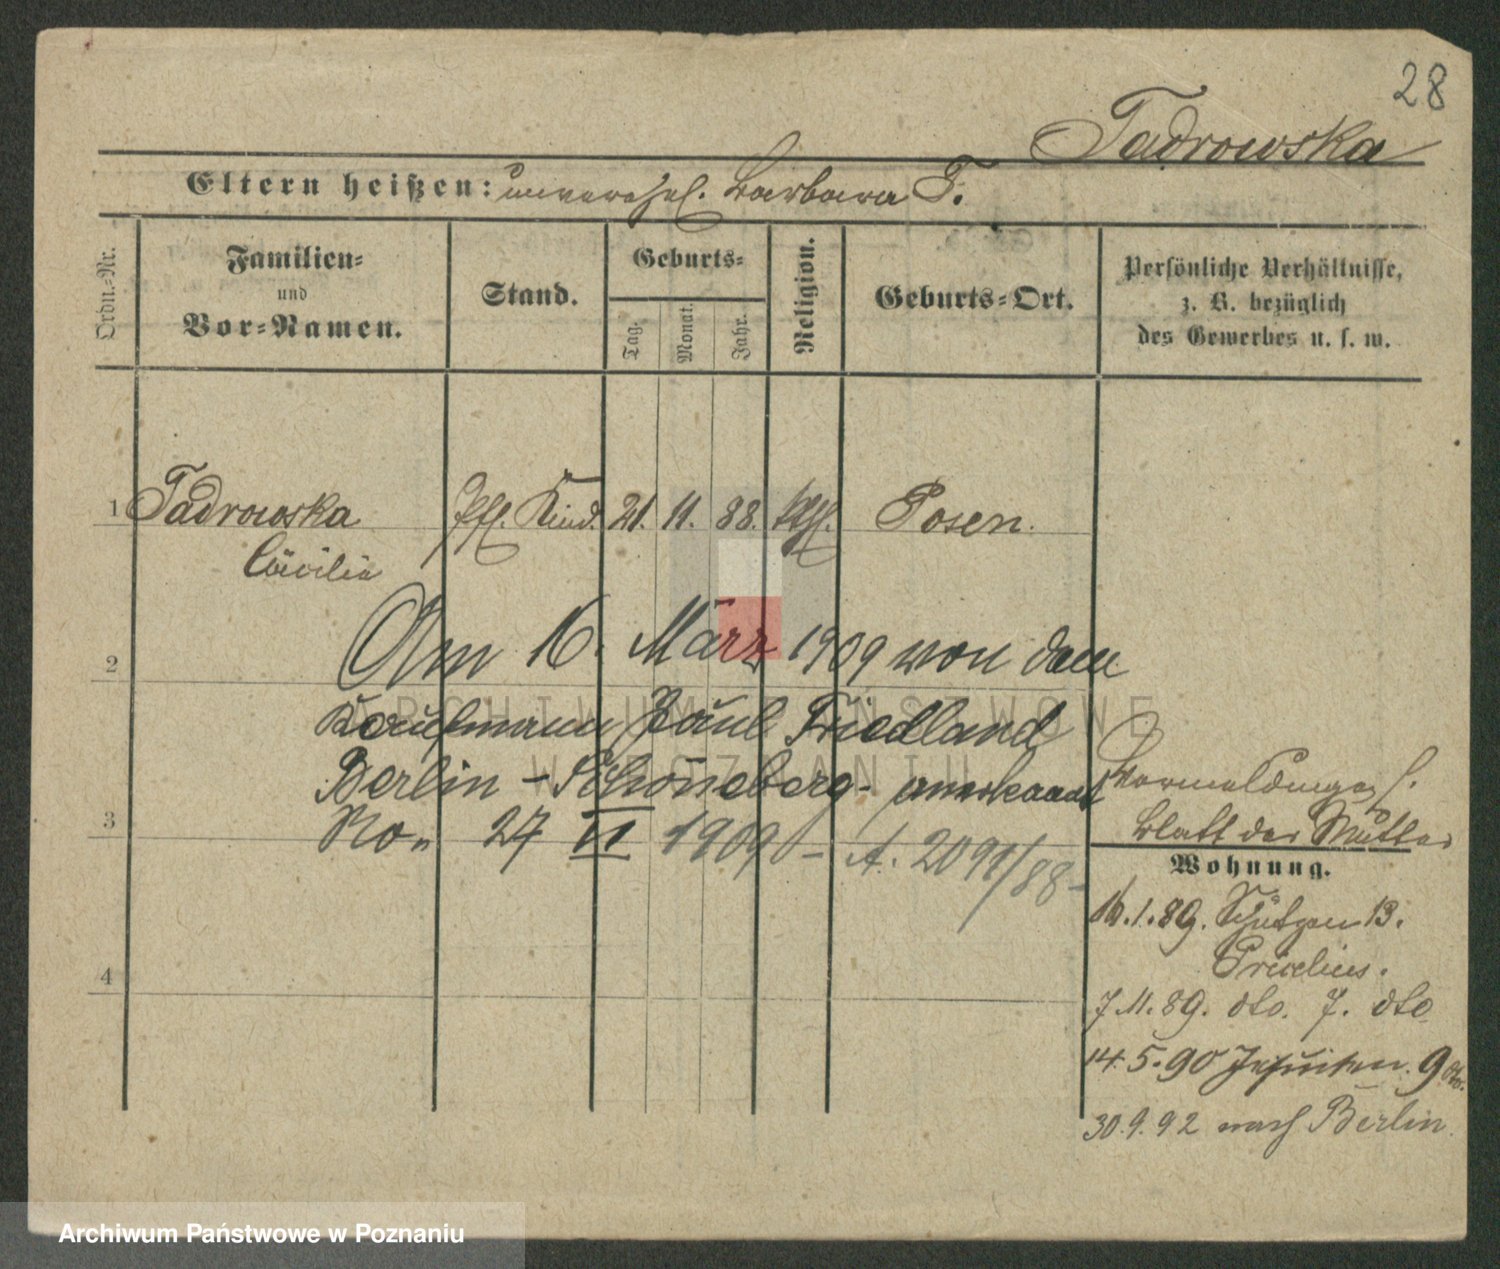 28
Tadrowska
Eltern heißen: unverehel. Barbara T.
Ordn.-Nr.
Familien-
und
Vor-Namen.
Stand.
Geburts-
Tag.
Monat.
Jahr.
Religion.
Geburts-Ort.
Persönliche Verhältnisse,
z. B. bezüglich
des Gewerbes u. s. w.
1 Tadrowska Pfl. Kind. 21. 11. 88. kth. Posen.
Cäcilie
Am 16. März 1909 von dem
2
Kaufmann Paul Friedland
Berlin-Schöneberg anerkannt
3 No. 27 II 1909 - A. 2091/88-
Vormeldungen s.
Blatt der Mutter
Wohnung.
16.1.89. Schützen 13.
7.11.89. dto. 7. dto
4
14.5.90 Jesuiten. 9 dto.
30.9.92 nach Berlin.
ARCHIWUM PAŃSTWOWE
W POZNANIU
Archiwum Państwowe w Poznaniu